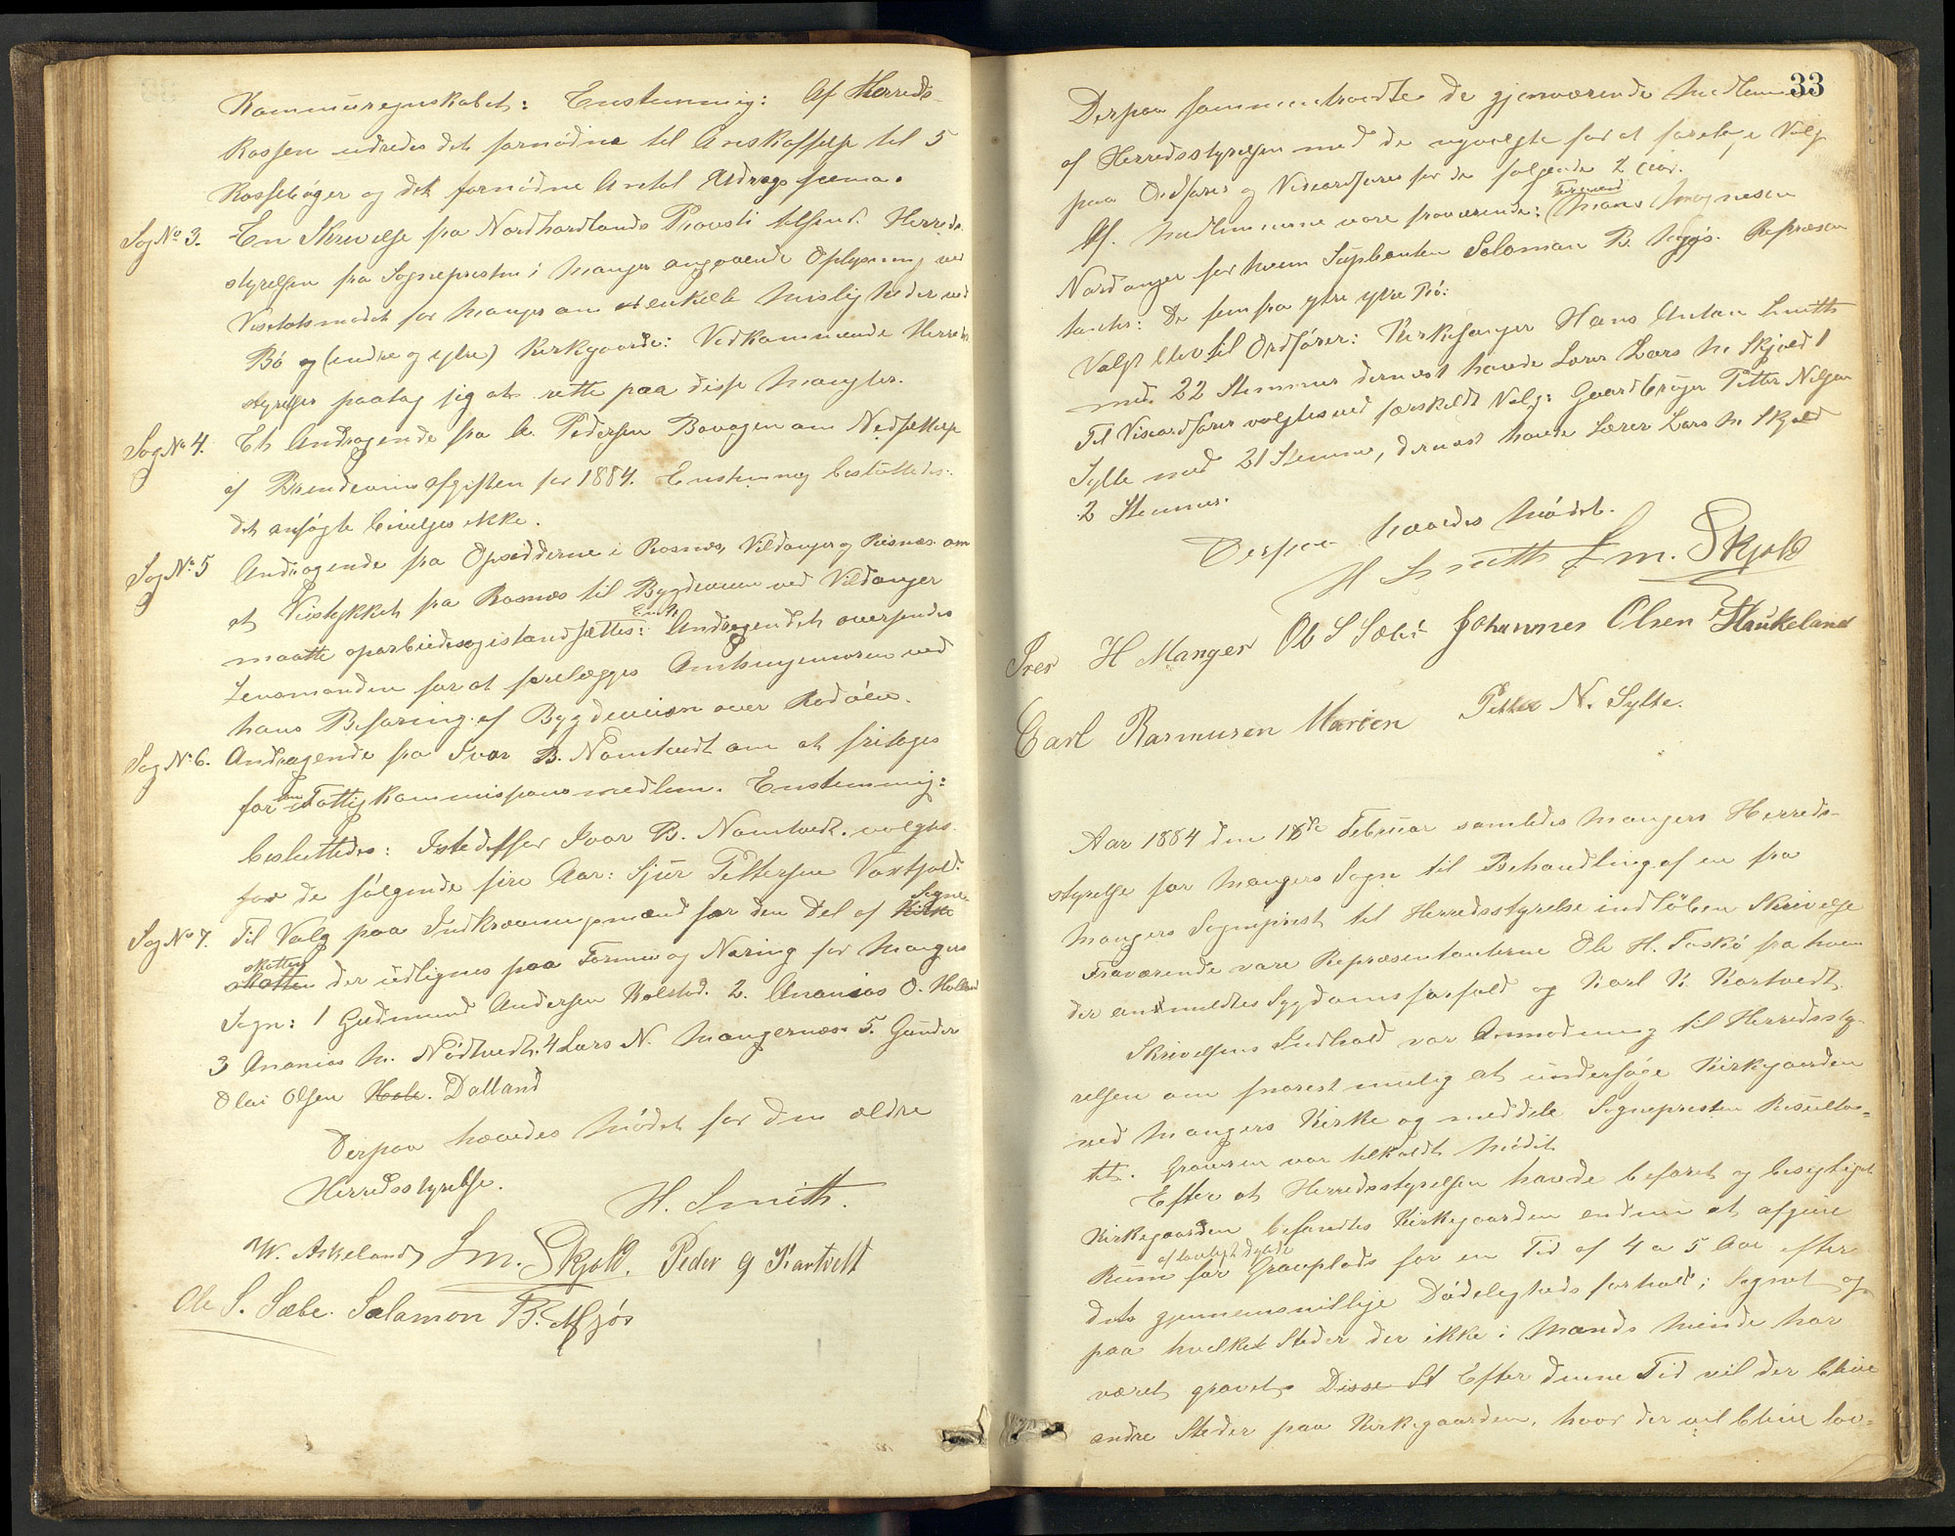 Kommuneregnskabet: Enstemmig: Af Herreds-
kassen udredes det fornødne til Anskaffelse til 5
Kassebøger og det fornødne Antal Uddrags skema.
Sag No 3. En Skrivelse fra Nordhordlands Provsti tilsendt Herreds-
styrelsen fra Sognepresten i Manger angaaende Oplysning ved
Visitatsmødet for Manger om enkelte Misligheder ved
Bø og (indre og ytre) Kirkgaarde: Vedkommende Herreds
styrelser paatog sig at rette paa disse Mangler.
Sag No 4. Et Andragende fra A. Pedersen Bovagen om Nedsættelse
af Brændevinsafgiften for 1884. Enstemmig besluttedes:
det ansøgte bevilges ikke.
Sag No 5 Andragende fra Opsidderne i Rosnes, Vildanger og Risnes om
at Veistykket fra Rosnæs til Bygdeveien ved Vildanger
maatte oparbeides og istandsættes: Enst. Andragendet oversendes
Lensmanden for at forelægges Amtsingeniøren ved
hans Befaring af Bygdeveien over Radøen.
Sag No 6. Andragende fra Ivar B. Namtvedt om at fritages
for som Fattigkommissions medlem. Enstemmig:
besluttedes: Istedetfor Ivar B. Namtvedt valgtes
for de følgende fire Aar: Sjur Pettersen Vaxtfald.
Sag No 7. Til Valg paa Indkrævningsmænd for den Del af Kirke Sogne-
Skatten skatten der udlignes paa Formue og Næring for Mangers
Sogn: 1 Gudmund Andersen Kolstad. 2. Ananias O. Holland
3 Ananias M. Nødtvedt. 4 Lars N. Mangernæs 5. Gunder
Olai Olsen Hole. Dalland
Derpaa hævedes Mødet for den ældre
Herredsstyrelse.
H. Smith.
W. Askeland L M. Skjold. Peder G Kartvelt
Ole S. Sæbø. Salamon B. Mjøs
33
Derpaa sammentraadte de gjenværende Medlemmer
af Herredsstyrelsen med de nyvalgte for at foretage Valg
paa Ordfører og Viseordfører for de følgende 2 Aar.
Af Medlemmerne vare fraværende: Formand (Mons Mognesen
Nordanger for hvem Suplenten Salomon B. Mjøs. Repræsen
tanter: De fem fra ytre Bø:
Valgt blev til Ordfører: Kirkesanger Hans Anton Smith
med 22 Stemmer dernæst havde Lærer Lars M. Skjold 1
Til Viseordfører valgtes ved særskildt Valg: Gaardbruger Petter Nilsen
Sylte med 21 Stemmer, dernæst havde Lærer Lars M. Skjold
2 Stemmer.
Derpaa hævedes Mødet.
H Smith L M. Skjold
Iver H Manger Ole S Sæbø Johannes Olsen Haukeland
Carl Rasmusen Marøen Petter N. Sylte.
Aar 1884 den 18de Februar samledes Mangers Herreds-
styrelse for Mangers Sogn til Behandling af en fra
Mangers Sogneprest til Herredsstyrelse indløben Skrivelse
Fraværende vare Repræsentanterne Ole H. Toskø fra hvem
der anmeldtes Sygdomsforfald og Karl K. Kartvedt.
Skrivelsens Indhold var Anmodning til Herredssty-
relsen om snarest mulig at undersøge Kirkgaarden
ved Mangers Kirke og meddele Sognepresten Resulta-
tet. Graveren var tilkaldt Mødet
Efter at Herredsstyrelsen havde befaret og besigtiget
Kirkegaarden befandtes Kirkegaarden endnu at afgive
Rum for Gravplads af lovligt Dybde for en Tid af 4 a 5 Aar efter
dets gjennemsnitlige Dødelighedsforhold i Sognet og
paa hvilket Steder der ikke i Mands Minde har
været gravet. Disse St Efter denne Tid vil der blive
andre Steder paa Kirkegaarden, hvor der vil blive lov-